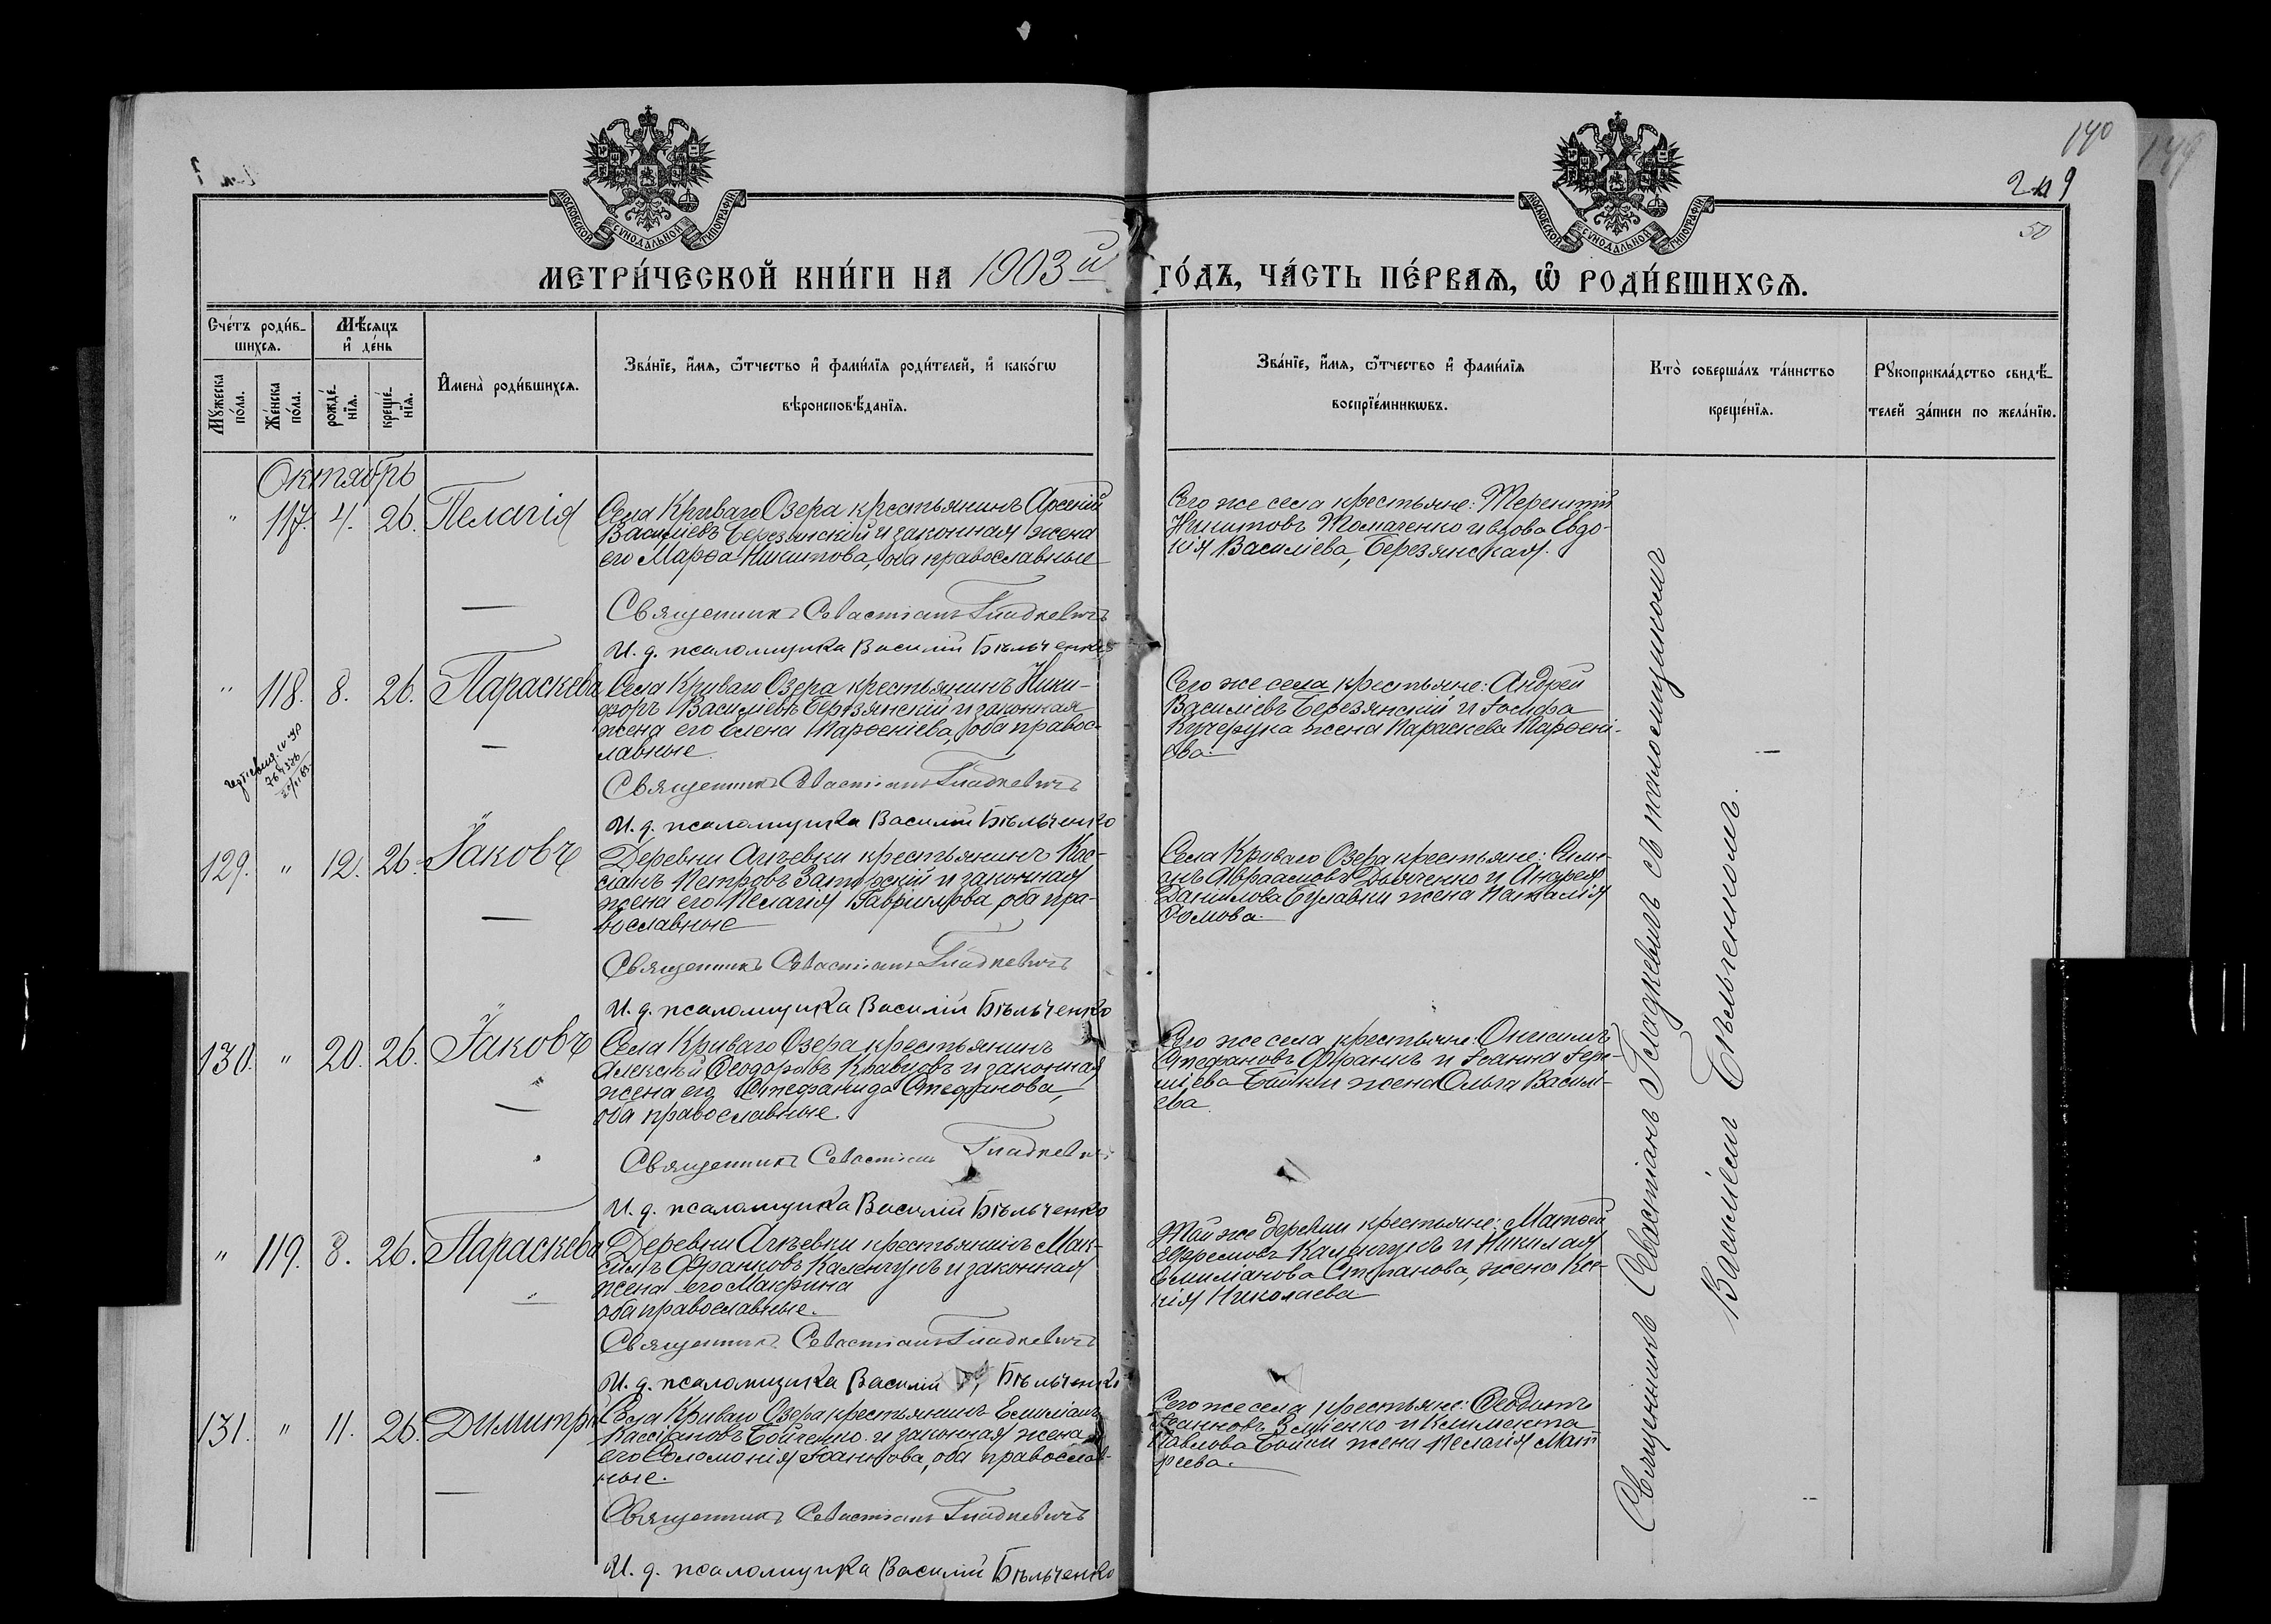 140
149
219
50
МОСКОВСКОЙ СѴНОДАЛЬНОЙ ТИПОГРАФІИ
МОСКОВСКОЙ СѴНОДАЛЬНОЙ ТИПОГРАФІИ
МЕТРИ́ЧЕСКОЙ КНИ́ГИ НА 1903й ГО́ДЪ, ЧА́СТЬ ПЕ́РВАѦ, Ѡ҆ РОДИ́ВШИХСѦ.
Сче́тъ роди́в-
шихсѧ.
Мꙋ́жеска по́ла.
Же́нска по́ла.
Мѣ́сѧцъ
и҆ де́нь
рожде́-
нїѧ.
креще́-
нїѧ.
И҆мена̀ роди́вшихсѧ.
Зва́нїе, и҆́мѧ, ѻ҆́тчество и҆ фами́лїѧ роди́телей, и҆ како́гѡ
вѣроисповѣ́данїѧ.
Зва́нїе, и҆́мѧ, ѻ҆́тчество и҆ фами́лїѧ
воспрїе́мникѡвъ.
Кто̀ соверша́лъ та́инство
креще́нїѧ.
Рꙋкоприкла́дство свидѣ́-
телей за́писи по жела́нїю.
Октябрь
" 117. 4. 26. Пелагія
Села Криваго Озера крестьянинъ Арсеній
Василіевъ Березянскій и законная жена
его Марѳа Никитова, оба православные
Священникъ Севастіанъ Гладкевичъ
И. д. псаломщика Василій Бѣльченко
Сего же села крестьяне: Терентій
Никитовъ Томаченко и вдова Евдо-
кія Василіева, Березянская.
" 118. 8. 26. Параскева
Села Криваго Озера крестьянинъ Ники-
форъ Василіевъ Березянскій и законная
жена его Елена Парѳеніева, оба правос-
лавные
Священникъ Севастіанъ Гладкевичъ
И. д. псаломщика Василій Бѣльченко
Сего же села крестьяне: Андрей
Василіевъ Березянскій и Іосифа
Кучерука жена Параскева Парѳені-
ева.
129. " 12. 26. Іаковъ
Деревни Ачѣевки крестьянинъ Кас-
сіанъ Петровъ и законная
жена его Пелагія Гавріилова, оба пра-
вославные
Священникъ Севастіанъ Гладкевичъ
И. д. псаломщика Василій Бѣльченко
Села Криваго Озера крестьяне: Симе-
онъ Авраамовъ Дьяченко и Андрея
Даніилова Булавки жена Наталія
Ѳомова.
130. " 20. 26. Іаковъ
Села Криваго Озера крестьянинъ
Алексѣй Ѳеодоровъ Кравцовъ и законная
жена его Стефанида Стефанова,
оба православные.
Священникъ Севастіанъ Гладкевичъ
И. д. псаломщика Василій Бѣльченко
Сего же села крестьяне: Онисимъ
Стефановъ Франкъ и Іоанна Іере-
міева Бойки жена Ольга Василі-
ева
" 119. 8. 26. Параскева
Деревни Ачѣевки крестьянинъ Мак-
симъ Франковъ Каленчукъ и законная
жена его Макрина
оба православные.
Священникъ Севастіанъ Гладкевичъ
И. д. псаломщика Василій Бѣльченко
Той же деревни крестьяне: Матѳей
Ефремовъ Каленчукъ и Николая
Емиліанова Степанова, жена Ксе-
нія Николаева
131. " 11. 26. Димитрій
Села Криваго Озера крестьянинъ Емиліанъ
Кассіановъ Бойченко и законная жена
его Соломонія Іоаннова, оба православ-
ные.
Священникъ Севастіанъ Гладкевичъ
И. д. псаломщика Василій Бѣльченко
Сего же села крестьяне: Ѳеодотъ
Іоанновъ и Климента
Павлова Бойки жена Пелагія Матѳ-
реева.
Священникъ Севастіанъ Гладкевичъ съ псаломщикомъ
Василіемъ Бѣльченкомъ.